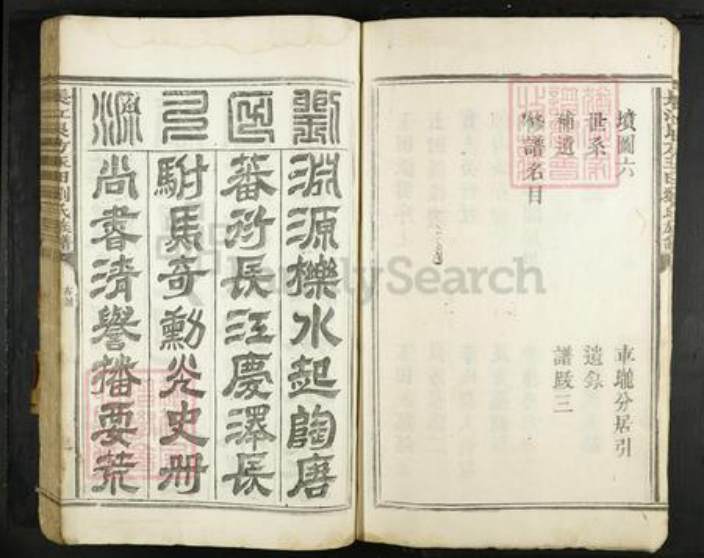 墳圖六 車壠分居引
世系 遺錄
補遺 譜跋三
修譜名目
劉
淵源櫟水起陶唐
蕃衍長江慶澤長
駙馬奇勳光史册
源
尚書清譽播要荒
劉氏族譜
FamilySearch